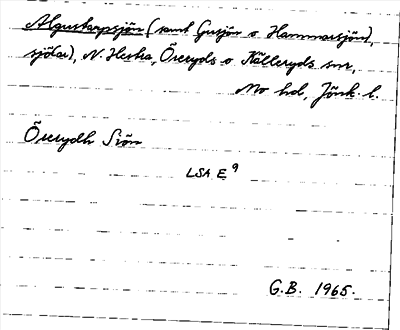 Algustorpsjön (samt Gusjön o Hammarsjön),
sjö(ar), N. Hestra, Öreryds o Kålleryds snr,
Mo hd, Jönk. l.
Örerydh Siön
LSA E⁹
G.B. 1965.